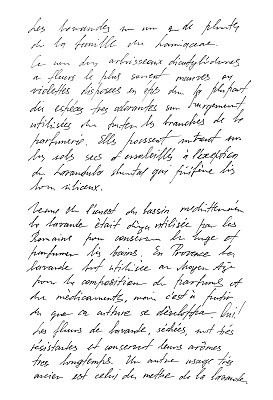 Les lavandes un genre de plantes
de la famille des lamiaceae.
Ce sont des arbrisseaux dicotylédones
à fleurs le plus souvent mauves ou
violettes disposées en épis dont la plupart
des espèces, très odorantes sont largement
utilisées dans toutes les branches de la
parfumerie. Elles poussent surtout sur
les sols secs et ensoleillés à l'exception
de lavandula stoechas qui préfère les
sols siliceux.
Venue de l'ouest du bassin méditerranéen
la lavande était déjà utilisée par les
Romains pour conserver le linge et
parfumer les bains. En Provence la
lavande fut utilisée au Moyen Age
pour la composition de parfums et
de médicaments, mais c'est à partir
du que sa culture se développa.
Les fleurs de lavande, séchées, sont très
résistantes et conservent leurs arômes
très longtemps. Un autre usage très
ancien est celui de mettre de la lavande